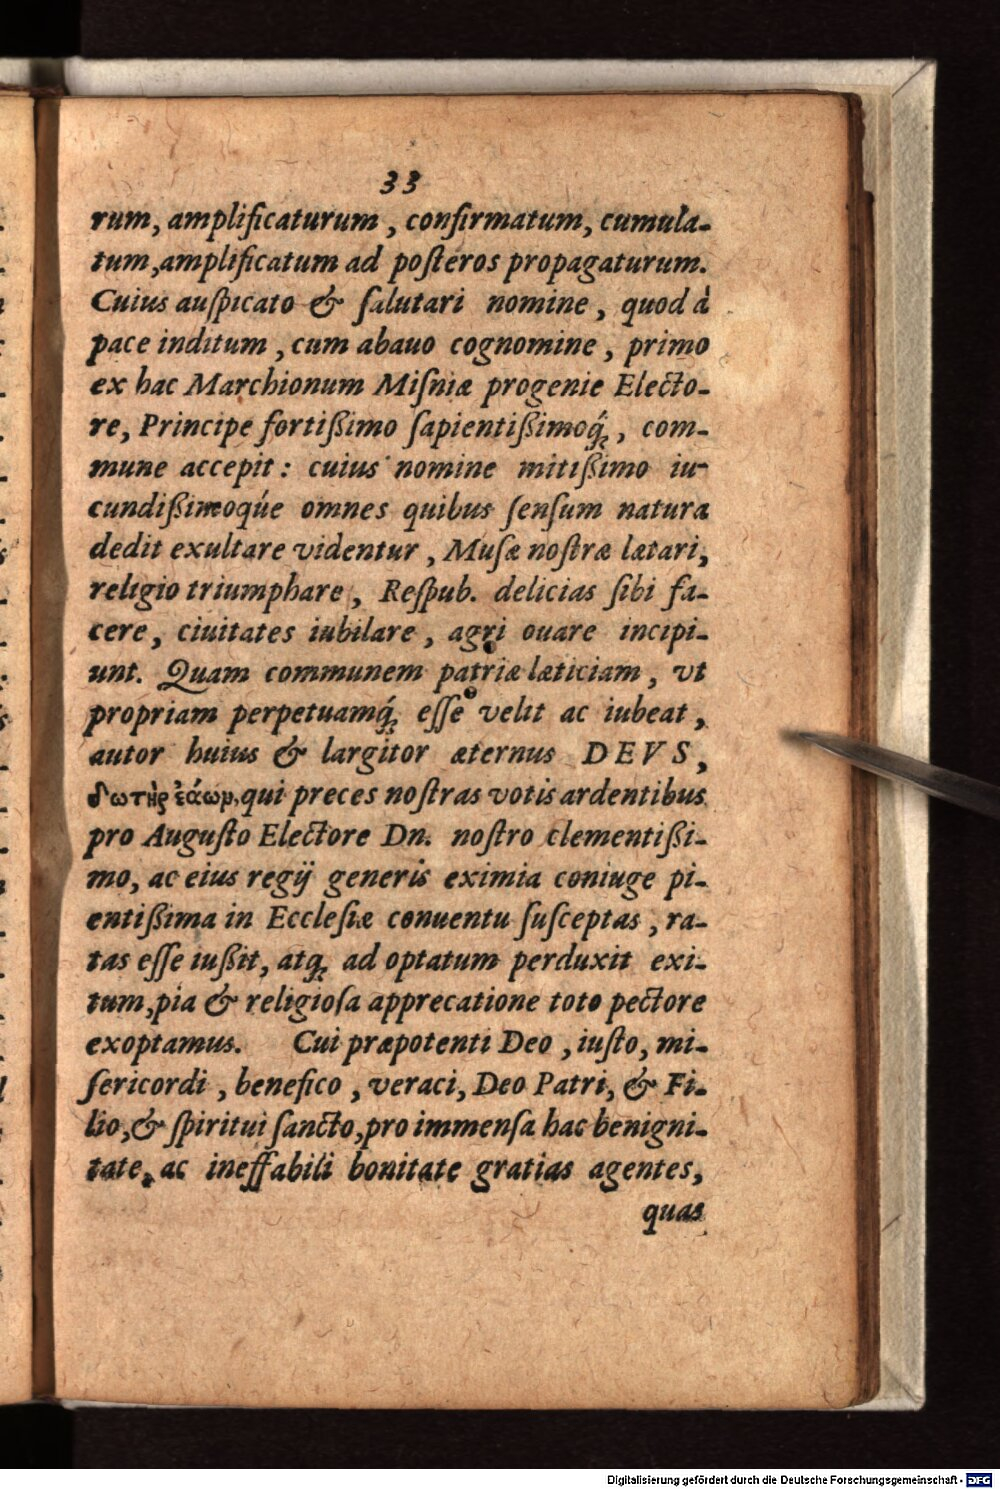 33
rum, amplificaturum, confirmatum, cumula-
tum, amplificatum ad poſteros propagaturum.
Cuius auſpicato & ſalutari nomine, quod à
pace inditum, cum abauo cognomine, primo
ex hac Marchionum Miſniæ progenie Electo-
re, Principe fortißimo ſapientißimoq́;, com-
mune accepit: cuius nomine mitißimo iu-
cundißimoqúe omnes quibus ſenſum natura
dedit exultare videntur, Muſæ noſtræ lætari,
religio triumphare, Reſpub. delicias ſibi fa-
cere, ciuitates iubilare, agri ouare incipi-
unt. Quam communem patriæ læticiam, vt
propriam perpetuamq́; eſſe velit ac iubeat,
autor huius & largitor æternus DEVS,
δωτὴρ ἐάων, qui preces noſtras votis ardentibus
pro Auguſto Electore Dn. noſtro clementißi-
mo, ac eius regij generis eximia coniuge pi-
entißima in Eccleſiæ conuentu ſuſceptas, ra-
tas eſſe iußit, atq; ad optatum perduxit exi-
tum, pia & religioſa apprecatione toto pectore
exoptamus. Cui præpotenti Deo, iuſto, mi-
ſericordi, benefico, veraci, Deo Patri, & Fi-
lio, & ſpiritui ſancto, pro immenſa hac benigni-
tate, ac ineffabili bonitate gratias agentes,
quas
Digitalisierung gefördert durch die Deutsche Forschungsgemeinschaft - DFG